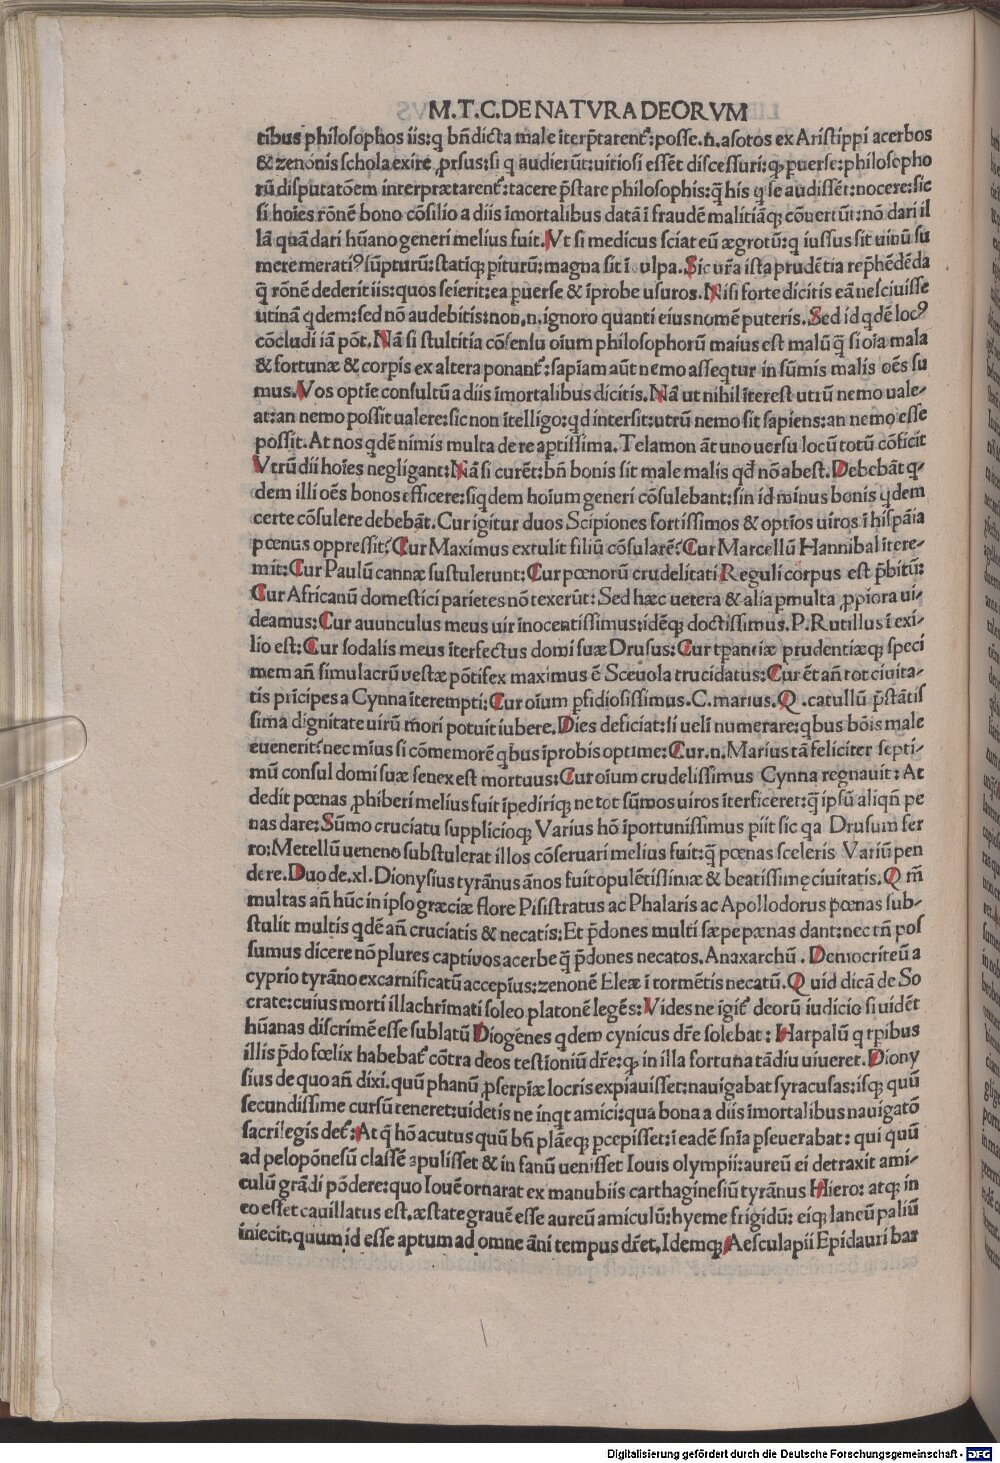 M.T.C.DE NATVRA DEORVM
tibus philosophos iis:q bñ dicta male iterp̃tarent᷑:posse.ñ.asotos ex Aristippi acerbos
& zenonis schola exire ꝓrsus:si q audierũt:uitiosi essẽt discessuri:ꝙ puerse:philosopho
rũ disputatõem interpræтarent᷑:tacere p̃stare philosophis:q̃ his q se audissẽt:nocere:sic
si hoĩes rõnẽ bono cõsilio a diis ĩmortalibus datã ĩ fraudẽ malitiãq; cõuertũt:nõ dari il
lã quã dari hũano generi melius fuit.Vt si medicus sciat eũ ægrotũ:q iussus sit uinũ su
mere meratiꝰ sũpturũ:statiq; piturũ:magna sit ĩ ulpa.Sic ur̃a ista prudẽtia rep̃hẽdẽda
q̃ rõnẽ dederit iis:quos scierit:ea puerse & ĩprobe usuros.Nisi forte dicitis eã nesciuisse
utinã qdem:sed nõ audebitis:non.n.ignoro quanti eius nomẽ puteris.Sed id qdẽ locꝰ
cõcludi iã põt.Nã si stultitia cõsensu oĩum philosophorũ maius est malũ q̃ si oĩa mala
& fortunæ & corpis ex altera ponant᷑:sapiam aũt nemo asseqtur in sũmis malis oẽs su
mus.Vos optĩe consultũ a diis ĩmortalibus dicitis.Nã ut nihil ĩterest utrũ nemo uale-
at:an nemo possit ualere:sic non ĩtelligo:qd intersit:utrũ nemo sit sapiens:an nemo esse
possit.At nos qdẽ nimis multa de re aptissima.Telamon ãt uno uersu locũ totũ cõficit
Vtrũ dii hoĩes negligant:Nã si curẽt:bñ bonis sit male malis qđ nõ abest.Debebãt q-
dem illi oẽs bonos efficere:siqdem hoĩum generi cõsulebant:sin id minus bonis qdem
certe cõsulere debebãt.Cur igitur duos Scipiones fortissimos & optĩos uiros ĩ hispãia
pœnus oppressit:Cur Maximus extulit filiũ cõsularẽ:Cur Marcellũ Hannibal ĩtere-
mit:Cur Paulũ cannæ sustulerunt:Cur pœnorũ crudelitati Reguli corpus est p̃bitũ:
Cur Africanũ domestici parietes nõ texerũt:Sed hæc uetera & alia pmulta ꝓpiora ui-
deamus:Cur auunculus meus uir ĩnocentissimus:idẽq; doctissimus.P.Rutillus ĩ exi-
lio est:Cur sodalis meus ĩterfectus domi suæ Drusus:Cur tpantiæ prudentiæq; speci
mem añ simulacrũ uestæ põtifex maximus ẽ Sceuola trucidatus:Cur ẽt añ tot ciuita-
tis prĩcipes a Cynna ĩterempti:Cur oĩum pfidiosissimus.C.marius.Q.catullũ p̃stãtis
sima dignitate uirũ m̃ori potuit iubere.Dies deficiat:si ueli numerare:qbus bõis male
euenerit:nec mĩus si cõmemorẽ qbus ĩprobis optime:Cur.n.Marius tã feliciter septi-
mũ consul domi suæ senex est mortuus:Cur oĩum crudelissimus Cynna regnauit: At
dedit pœnas ꝓhiberi melius fuit ĩpediriq; ne tot sũmos uiros ĩterficeret:q̃ ipsũ aliqñ pe
nas dare:Sũmo cruciatu supplicioq; Varius hõ ĩportunissimus piit sic qa Drusum fer
ro:Metellũ ueneno substulerat illos cõseruari melius fuit:q̃ pœnas sceleris Variũ pen
dere.Duo de.xl.Dionysius tyrãnus ãnos fuit opulẽtissimæ & beatissimę ciuitatis.Q m̃
multas añ hũc in ipso græciæ flore Pisistratus ac Phalaris ac Apollodorus pœnas sub-
stulit multis qdẽ añ cruciatis & necatis:Et p̃dones multi sæpe pænas dant:nec tñ pos
sumus dicere nõ plures captivos acerbe q̃ p̃dones necatos.Anaxarchũ.Democriteũ a
cyprio tyrãno excarnificatũ accepĩus:zenonẽ Eleæ ĩ tormẽtis necatũ.Quid dicã de So
crate:cuius morti illachrimati soleo platonẽ legẽs:Vides ne igit᷑ deorũ iudicio si uidẽt
hũanas discrimẽ esse sublatũ Diogẽnes qdem cynicus dr̃e solebat:Harpalũ q tpibus
illis p̃do fœlix habebat᷑ cõtra deos testioniũ dr̃e:ꝙ in illa fortuna tãdiu uiueret.Diony
sius de quo añ dixi.quũ phanũ ꝓserpĩæ locris expiauisset:nauigabat syracusas:isq; quũ
secundissime cursũ teneret:uidetis ne inqt amici:qua bona a diis ĩmortalibus nauigatõ
sacrilegis det᷑:At q̃ hõ acutus quũ bñ plãeq; pcepisset:ĩ eadẽ sñia pseuerabat: qui quũ
ad pelopõnesũ classẽ apulisset & in fanũ uenisset Iouis olympii:aureũ ei detraxit ami-
culũ grãdi põdere:quo Iouẽ ornarat ex manubiis carthaginesiũ tyrãnus Hiero: atq; in
eo esset cauillatus est.æstate grauẽ esse aureũ amiculũ:hyeme frigidũ: eiq; laneũ paliũ
iniecit:quum id esse aptum ad omne ãni tempus dr̃et.Idemq; Aesculapii Epidauri bar
Digitalisierung gefördert durch die Deutsche Forschungsgemeinschaft - DFG